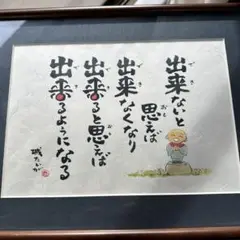 出来ないと
思えば
出来なくなり
出来ると思えば
出来るようになる